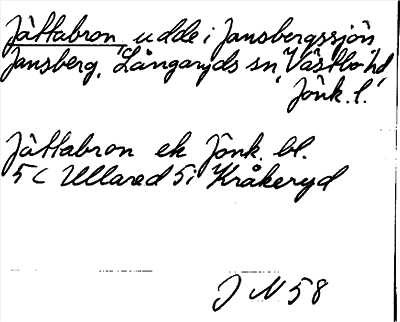 Jättabron, udde i Jansbergssjön
Jansberg, Långaryds sn, Västbo hd,
Jönk. l.
Jättabron ek Jönk. bl.
5 C Ullared 5i Kråkeryd
J N 58